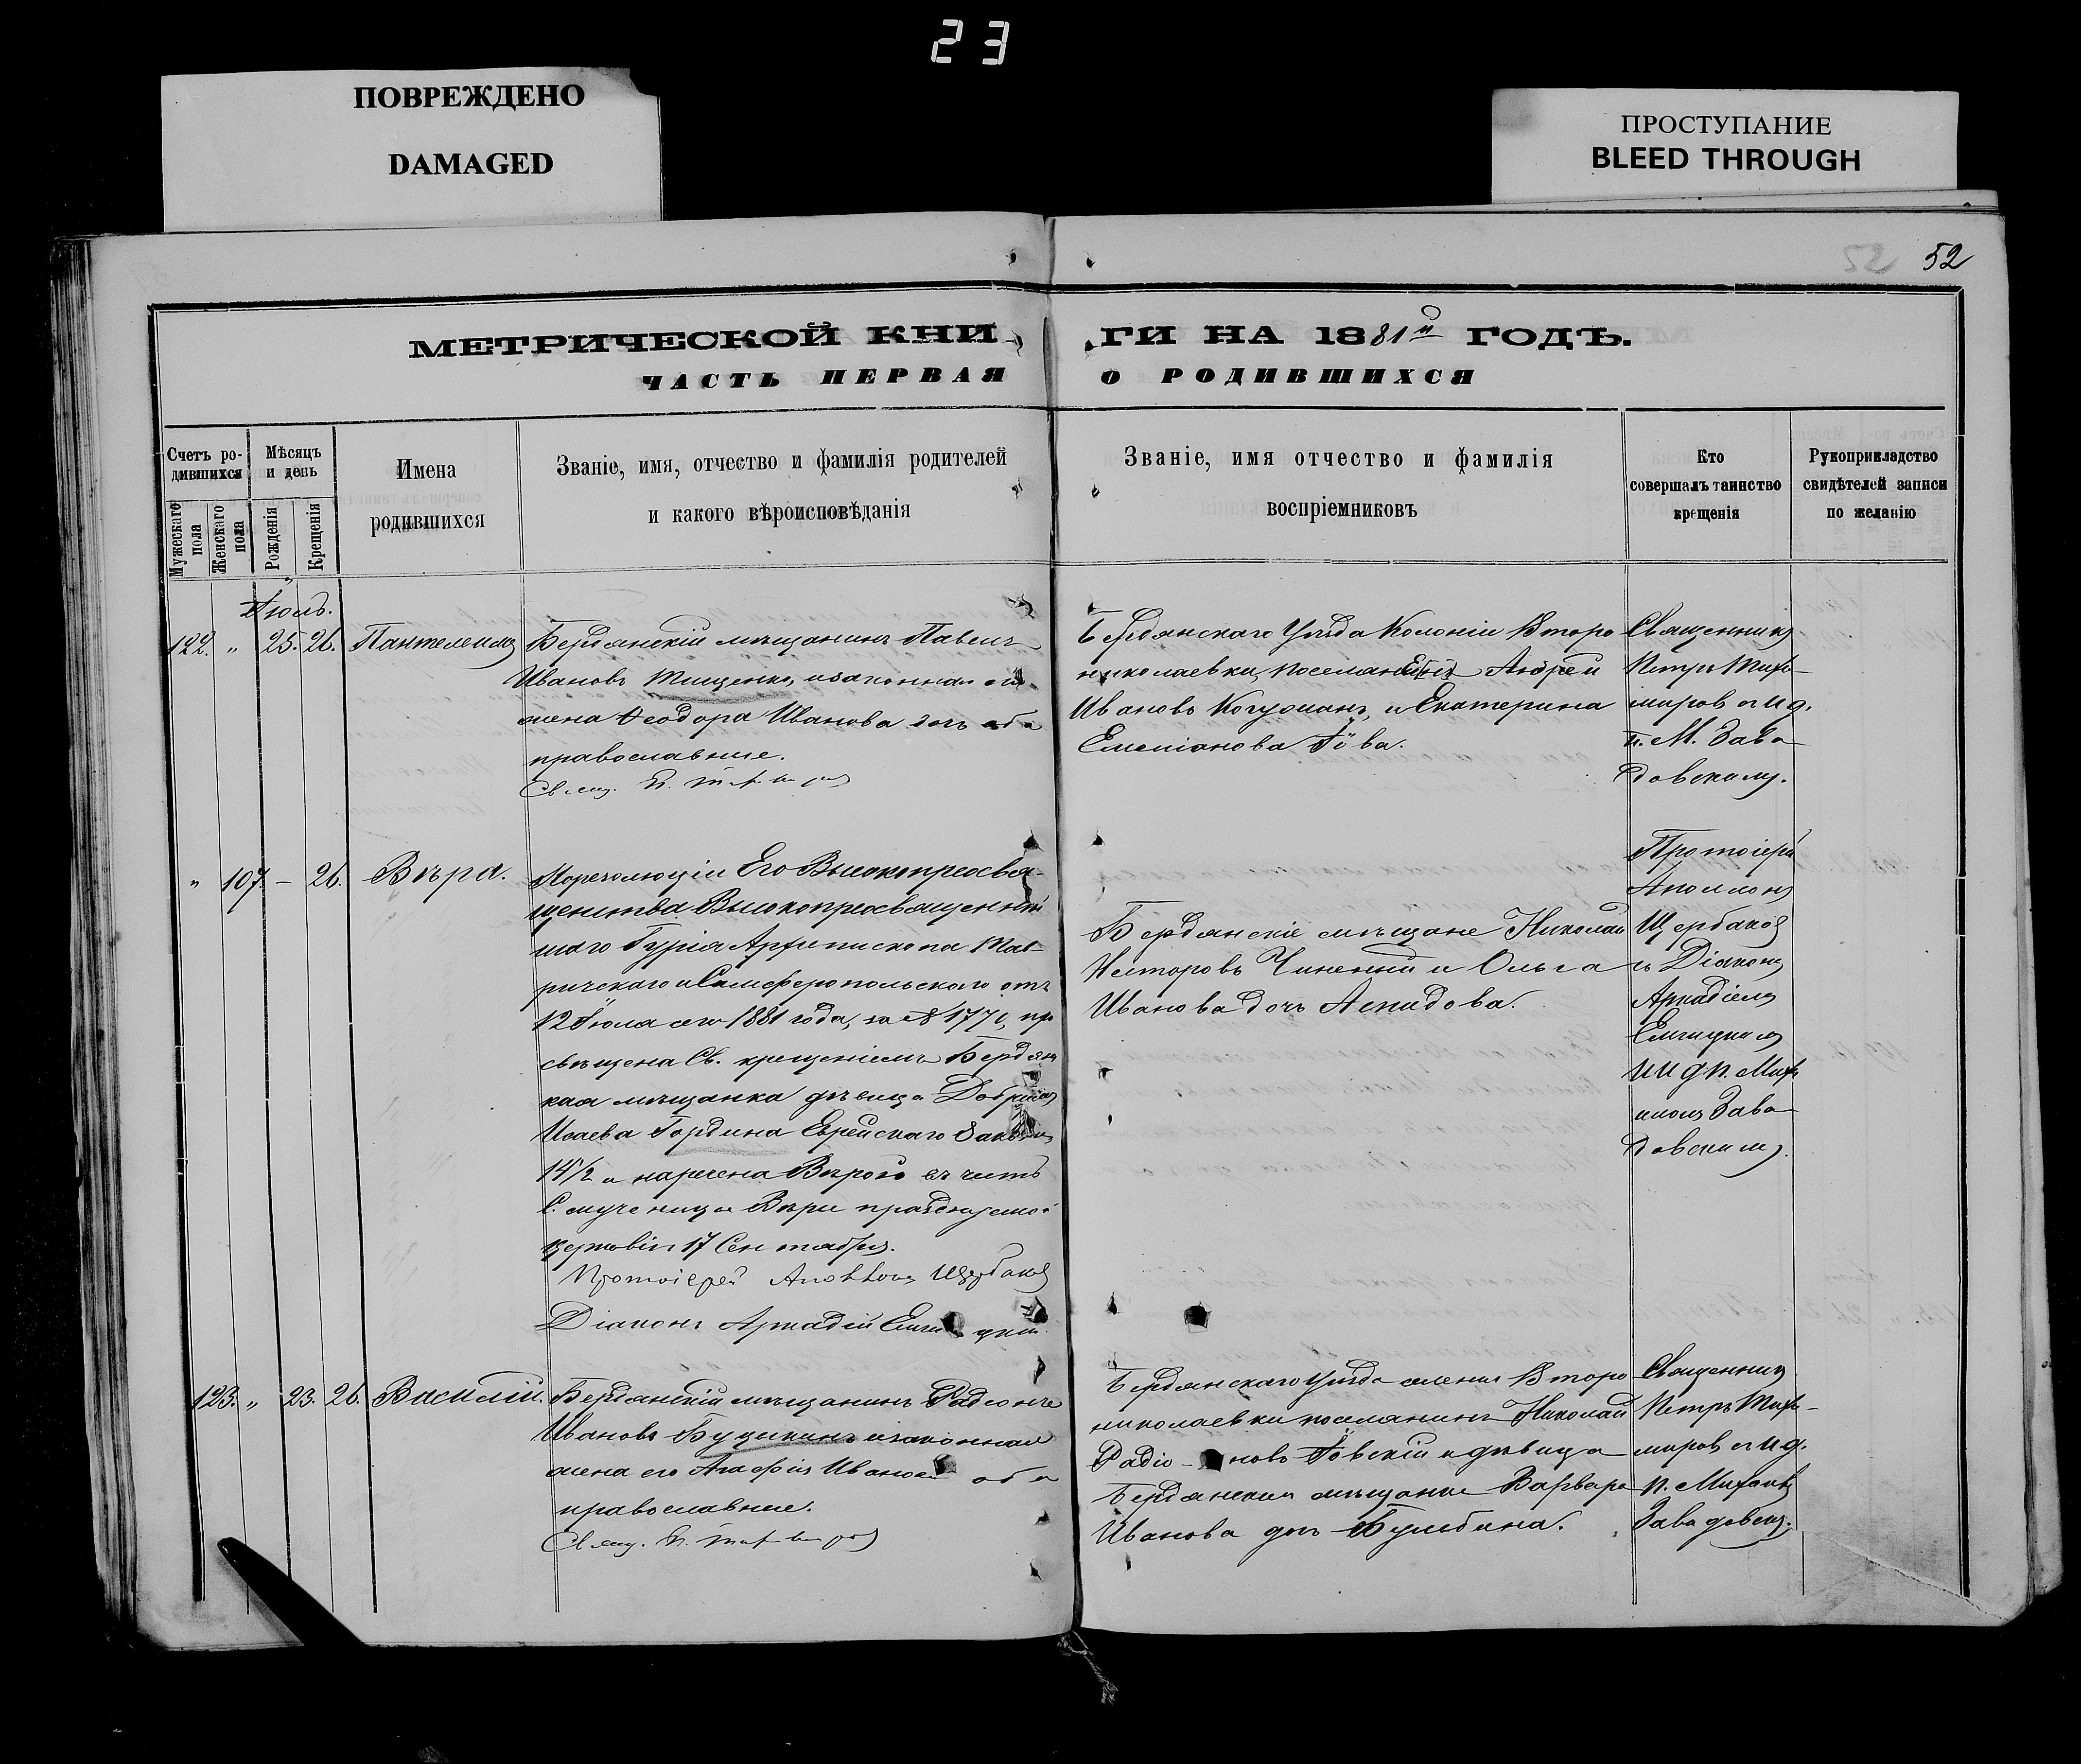 23
ПОВРЕЖДЕНО
DAMAGED
ПРОСТУПАНИЕ
BLEED THROUGH
52
МЕТРИЧЕСКОЙ КНИ
ГИ НА 1881й ГОДЪ.
ЧАСТЬ ПЕРВАЯ
О РОДИВШИХСЯ
Счетъ ро-
дившихся
Мужескаго
пола
Женскаго
пола
Мѣсяцъ
и день
Рожденія
Крещенія
Имена
родившихся
Званіе, имя, отчество и фамилія родителей
и какого вѣроисповѣданія
Званіе, имя отчество и фамилія
воспріемниковъ
Кто
совершалъ таинство
крещенія
Рукоприкладство
свидѣтелей записи
по желанію
Іюль.
122. " 25. 26. Пантелеимъ
Бердянскій мѣщанинъ Павелъ
Ивановъ Тищенко, и законная его
жена Ѳеодора Иванова дочь оба
православные.
Свящ. П. Тихомировъ
Бердянскаго Уѣзда Колоніи Второ
николаевки, поселянинъ Андрей
Ивановъ и Екатерина
Емеліанова
Священникъ
Петръ Тихо-
мировъ съ и.д.
п. М. Зава
довскимъ.
" 107. — 26. Вѣра.
По резолюціи Его Высокопреосвя-
щенства Высокопреосвященнѣй
шаго Гурія Архіепископа Тав-
рическаго и Симферопольскаго отъ
12 Іюля сего 1881 года, за № про
свѣщена Св. крещеніемъ Бердян
кая мѣщанка дѣвица
Исаева Гордина Еврейскаго Закона
14½ и наречена Вѣрою въ честь
С. мученицы Вѣры празднуемой
церковію 17 Сентября.
Протоіерей Аполлонъ Щербаковъ
Діаконъ Аркадій
Бердянскіе мѣщане Николай
Несторовъ и Ольга
Иванова дочь Аспидова.
Протоіерей
Аполлонъ
Щербаковъ
съ Діакономъ
Аркадіемъ
и и.д. п. Миха
иломъ Зава
довскимъ.
123. " 23. 26. Василій.
Бердянскій мѣщанинъ
Ивановъ и законная
жена его Агафія Иванова оба
православные.
Свящ. П. Тихомировъ
Бердянскаго Уѣзда селенія Второ
николаевки поселянинъ Николай
Радіоновъ и дѣвица
Бердянская мѣщанка Варвара
Иванова дочь
Священникъ
Петръ Тихо-
мировъ съ и.д.
п. Михаиломъ
Завадовскимъ.